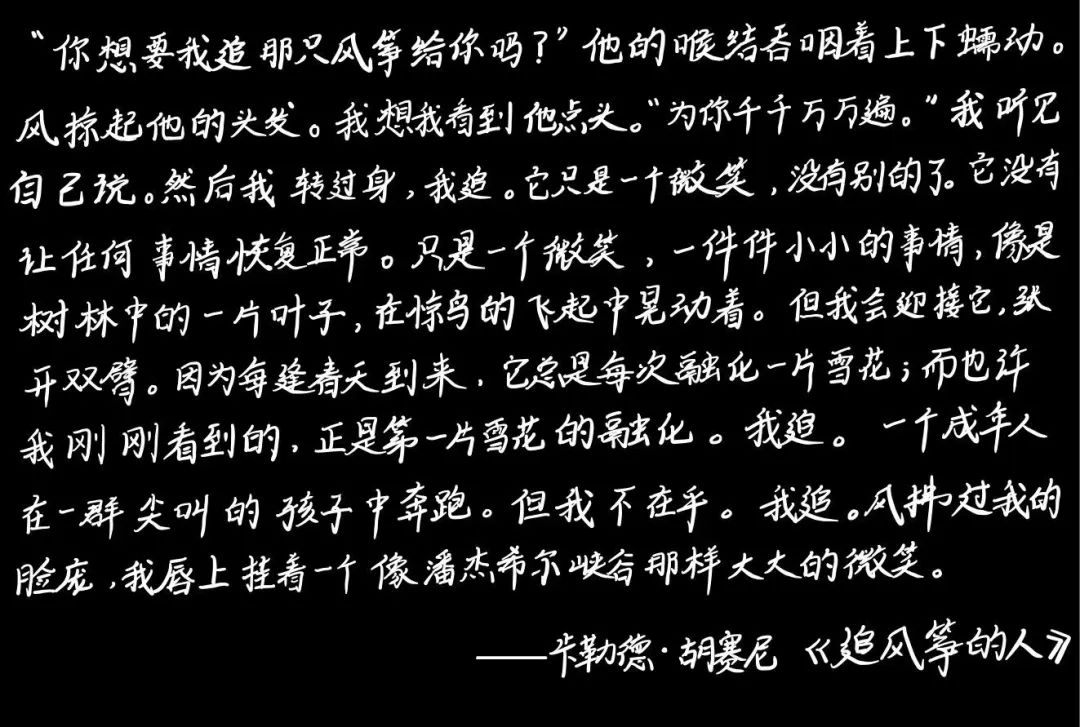 “你想要我追那只风筝给你吗？”他的喉结吞咽着上下蠕动。
风掠起他的头发。我想我看到他点头。“为你千千万万遍。”我听见
自己说。然后我转过身，我追。它只是一个微笑，没有别的了。它没有
让任何事情恢复正常。只是一个微笑，一件件小小的事情，像是
树林中的一片叶子，在惊鸟的飞起中晃动着。但我会迎接它，张
开双臂。因为每逢春天到来，它总是每次融化一片雪花；而也许
我刚刚看到的，正是第一片雪花的融化。我追。一个成年人
在一群尖叫的孩子中奔跑。但我不在乎。我追。风拂过我的
脸庞，我唇上挂着一个像潘杰希尔峡谷那样大大的微笑。
——卡勒德·胡赛尼《追风筝的人》